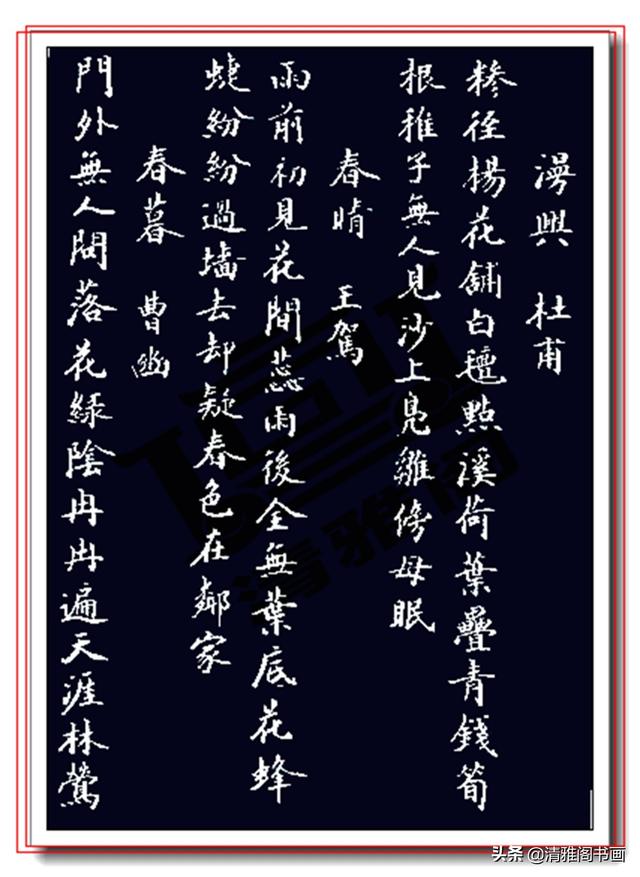 漫興 杜甫
糝径楊花舖白氊點溪荷葉疊青錢筍
根稚子無人見沙上鳧雛傍母眠
春晴 王駕
雨前初見花間蕊雨後全無葉底花蜂
蜨紛紛過墻去却疑春色在鄰家
春暮 曹豳
門外無人問落花綠陰冉冉遍天涯林鶯
清雅阁
头条 @清雅阁书画